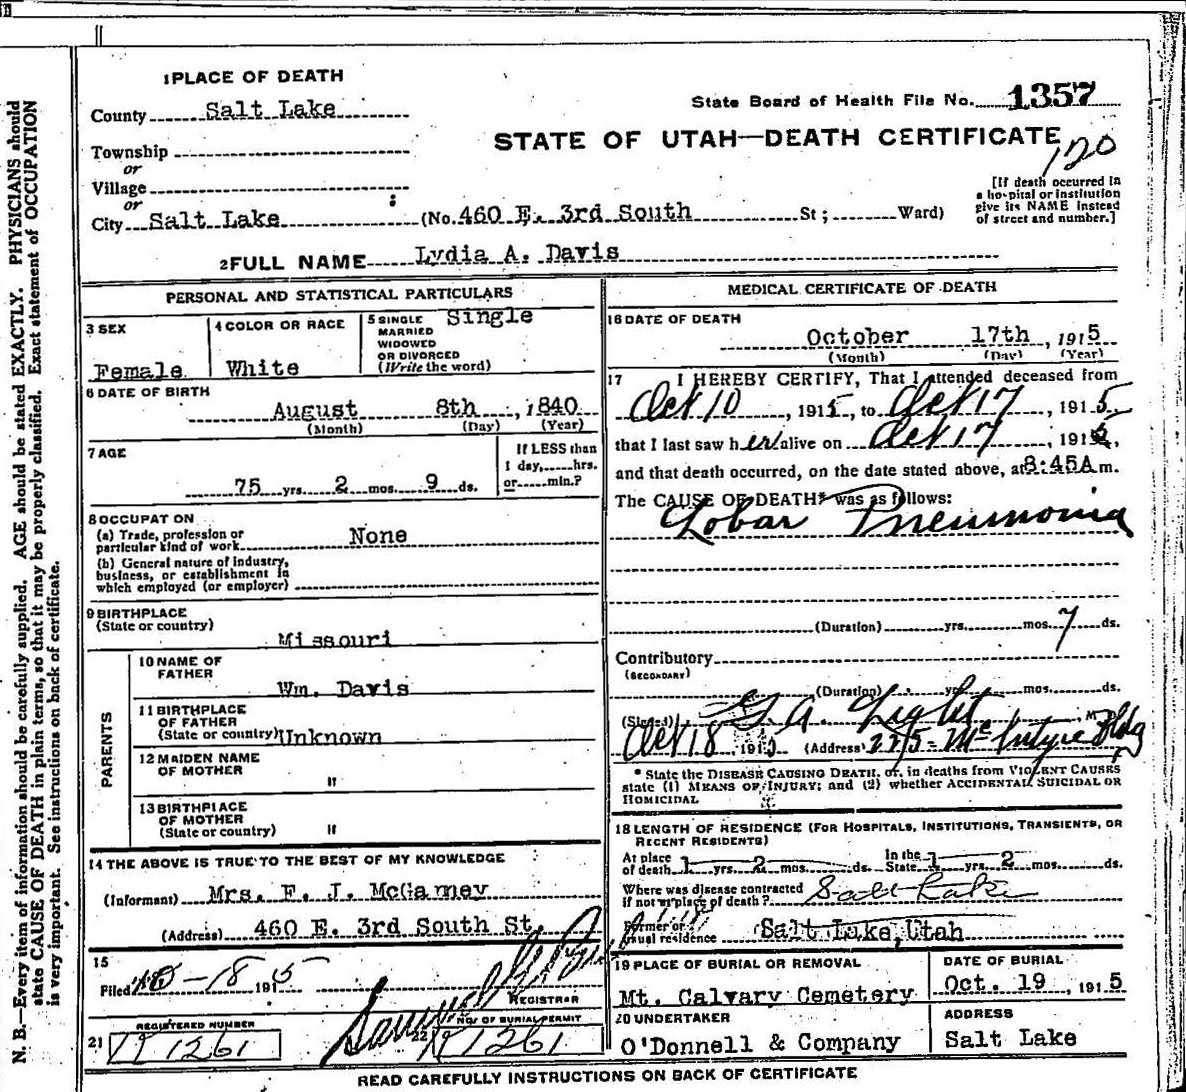 1 PLACE OF DEATH
County Salt Lake
State Board of Health File No. 1357
STATE OF UTAH—DEATH CERTIFICATE
120
Township
or
Village
or
City Salt Lake (No. 460 E. 3rd South St; Ward)
[If death occurred in
a hospital or institution
give its NAME instead
of street and number.]
2 FULL NAME Lydia A. Davis
PERSONAL AND STATISTICAL PARTICULARS
3 SEX
Female
4 COLOR OR RACE
White
5 SINGLE
MARRIED
WIDOWED
OR DIVORCED
(Write the word)
Single
6 DATE OF BIRTH
August 8th, 1840
(Month) (Day) (Year)
7 AGE
75 yrs. 2 mos. 9 ds.
If LESS than
1 day, hrs.
or min.?
8 OCCUPAT ON
(a) Trade, profession or
particular kind of work None
(b) General nature of industry,
business, or establishment in
which employed (or employer)
9 BIRTHPLACE
(State or country)
Missouri
PARENTS
10 NAME OF
FATHER
Wm. Davis
11 BIRTHPLACE
OF FATHER
(State or country) Unknown
12 MAIDEN NAME
OF MOTHER "
13 BIRTHPLACE
OF MOTHER
(State or country) "
14 THE ABOVE IS TRUE TO THE BEST OF MY KNOWLEDGE
(Informant) Mrs. F. J. McGamey
(Address) 460 E. 3rd South St.
15
Filed 10-18 1915
REGISTRAR
REGISTERED NUMBER
21 1261
NO. OF BURIAL PERMIT
22 1261
MEDICAL CERTIFICATE OF DEATH
16 DATE OF DEATH
October 17th, 1915
(Month) (Day) (Year)
17 I HEREBY CERTIFY, That I attended deceased from
Oct 10, 1915, to Oct 17, 1915
that I last saw her alive on Oct 17, 1915,
and that death occurred, on the date stated above, at 8:45A m.
The CAUSE OF DEATH* was as follows:
Lobar Pneumonia
(Duration) yrs. mos. 7 ds.
Contributory
(SECONDARY)
(Duration) yrs. mos. ds.
(Signed) G. A. Light, M. D.
Oct 18, 1915 (Address) 225 McIntyre Bldg
* State the DISEASE CAUSING DEATH, or, in deaths from VIOLENT CAUSES
state (1) MEANS OF INJURY; and (2) whether ACCIDENTAL, SUICIDAL OR
HOMICIDAL
18 LENGTH OF RESIDENCE (FOR HOSPITALS, INSTITUTIONS, TRANSIENTS, OR
RECENT RESIDENTS)
At place
of death 1 yrs. 2 mos. ds.
In the
State 1 2 mos. ds.
Where was disease contracted
if not at place of death? Salt Lake
Former or
usual residence Salt Lake, Utah
19 PLACE OF BURIAL OR REMOVAL
Mt. Calvary Cemetery
DATE OF BURIAL
Oct. 19, 1915
20 UNDERTAKER
O'Donnell & Company
ADDRESS
Salt Lake
READ CAREFULLY INSTRUCTIONS ON BACK OF CERTIFICATE
N. B.—Every item of information should be carefully supplied. AGE should be stated EXACTLY. PHYSICIANS should
state CAUSE OF DEATH in plain terms, so that it may be properly classified. Exact statement of OCCUPATION
is very important. See instructions on back of certificate.